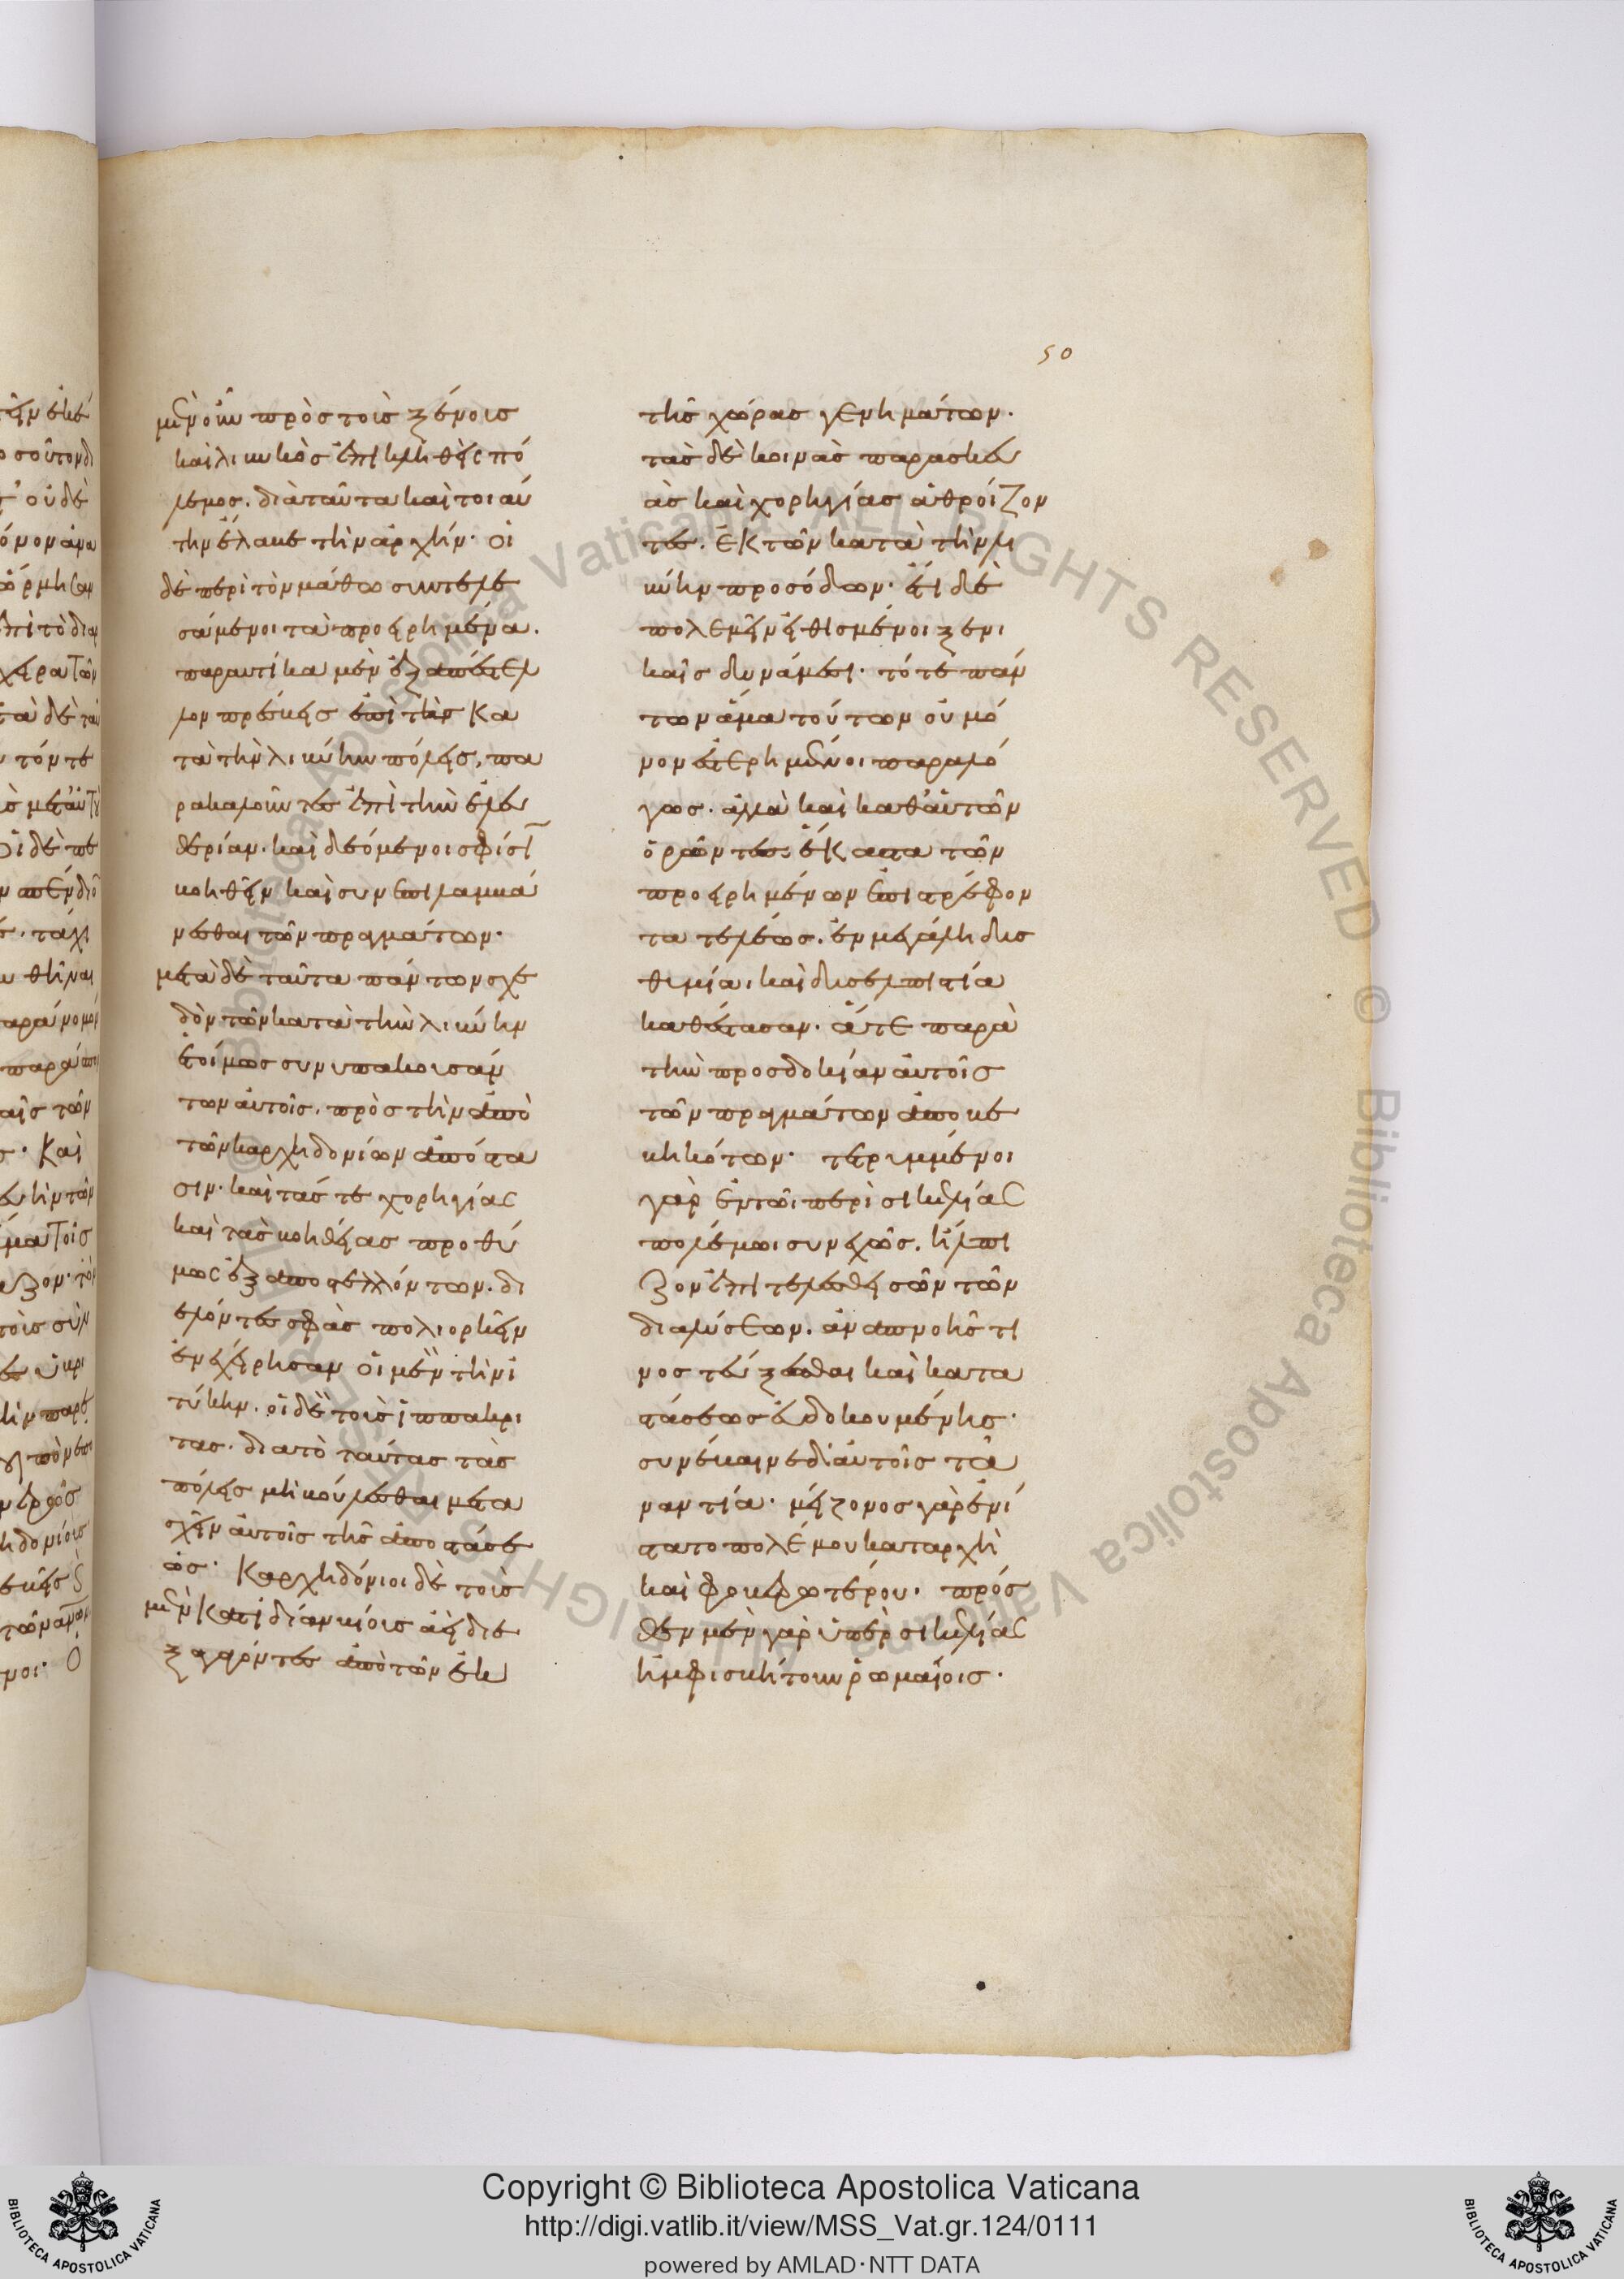 50
μὲν οὖν πρὸς τοὺς ξένους
καὶ λιβυκὸς ἐπικληθεὶς πό
λεμος. διὰ ταῦτα καὶ τοιαύ
την ἔλαβε τὴν ἀρχήν. οἱ
δὲ περὶ τὸν μάθω συντελε
σάμενοι τὰ προειρημένα.
παραυτίκα μὲν ἐξαπέστελ
λον πρέσβεις ἐπὶ τὴν κα
τὰ τὴν λιβύην πόλεις, πα
ρακαλοῦντες ἐπὶ τὴν ἐλευ
θερίαν. καὶ δεόμενοι σφίσι
βοηθεῖν καὶ συνεπιλαμβά
νεσθαι τῶν πραγμάτων.
μετὰ δὲ ταῦτα πάντων σχε
δὸν τῶν κατὰ τὴν λιβύην
ἑτοίμως συνυπακουσάν
των αὐτοῖς. πρὸς τὴν ἀπὸ
τῶν καρχηδονίων ἀπόστα
σιν. καὶ τάς τε χορηγίας
καὶ τὰς βοηθείας προθύ
μως ἐξαποστελλόντων. δι
ελόντες σφᾶς πολιορκεῖν
ἐνεχείρησαν οἱ μὲν τὴν ἰ
τύκην. οἱ δὲ τοὺς ἱππακρι
τας. διατὸ ταύτας τὰς
πόλεις μὴ βούλεσθαι μετα
σχεῖν αὐτοῖς τῆς ἀποστάσε
ως. Καρχηδόνιοι δὲ τοὺς
μὲν κατιδίαν βίους ἀεὶ διε
ξαγαγόντες ἀπὸ τῶν ἐκ
τῆς χώρας γενημάτων.
τὰς δὲ κοινὰς παρασκευ
ὰς καὶ χορηγίας ἀθροίζον
τες. ἐκ τῶν κατὰ τὴν λι
βύην προσόδων. ἔτι δὲ
πολεμεῖν εἰθισμένοι ξενι
καῖς δυνάμεσι. τότε πάν
των ἅμα τούτων οὐ μό
νον ἐστερημένοι παραλό
γως. ἀλλὰ καὶ καθ' αὑτῶν
ὁρῶντες ἕκαστα τῶν
προειρημένων ἐπιστρέφον
τα τελέως. ἐν μεγάλῃ δυσ
θυμία. καὶ δυσελπιστία
καθέστασαν. ἅτε παρὰ
τὴν προσδοκίαν αὐτοῖς
τῶν πραγμάτων ἀποβε
βηκότων. τετριμμένοι
γὰρ ἐν τῶι περὶ σικελίας
πολέμωι συνεχῶς, ἤλπι
ζον ἐπιτελεσθεισῶν τῶν
διαλύσεων. ἀναπνοῆς τι
νος τεύξεσθαι καὶ κατα
στάσεως εὐδοκουμένης.
συνέβαινε δ' αὐτοῖς τἀ
ναντία. μείζονος γὰρ ἐνί
στατο πολέμου καταρχὴ
καὶ φοβερωτέρου. πρόσ
θεν μὲν γὰρ ὑπὲρ σικελίας
ἠμφισβήτουν ῥωμαίοις.
Copyright © Biblioteca Apostolica Vaticana
http://digi.vatlib.it/view/MSS_Vat.gr.124/0111
powered by AMLAD·NTT DATA